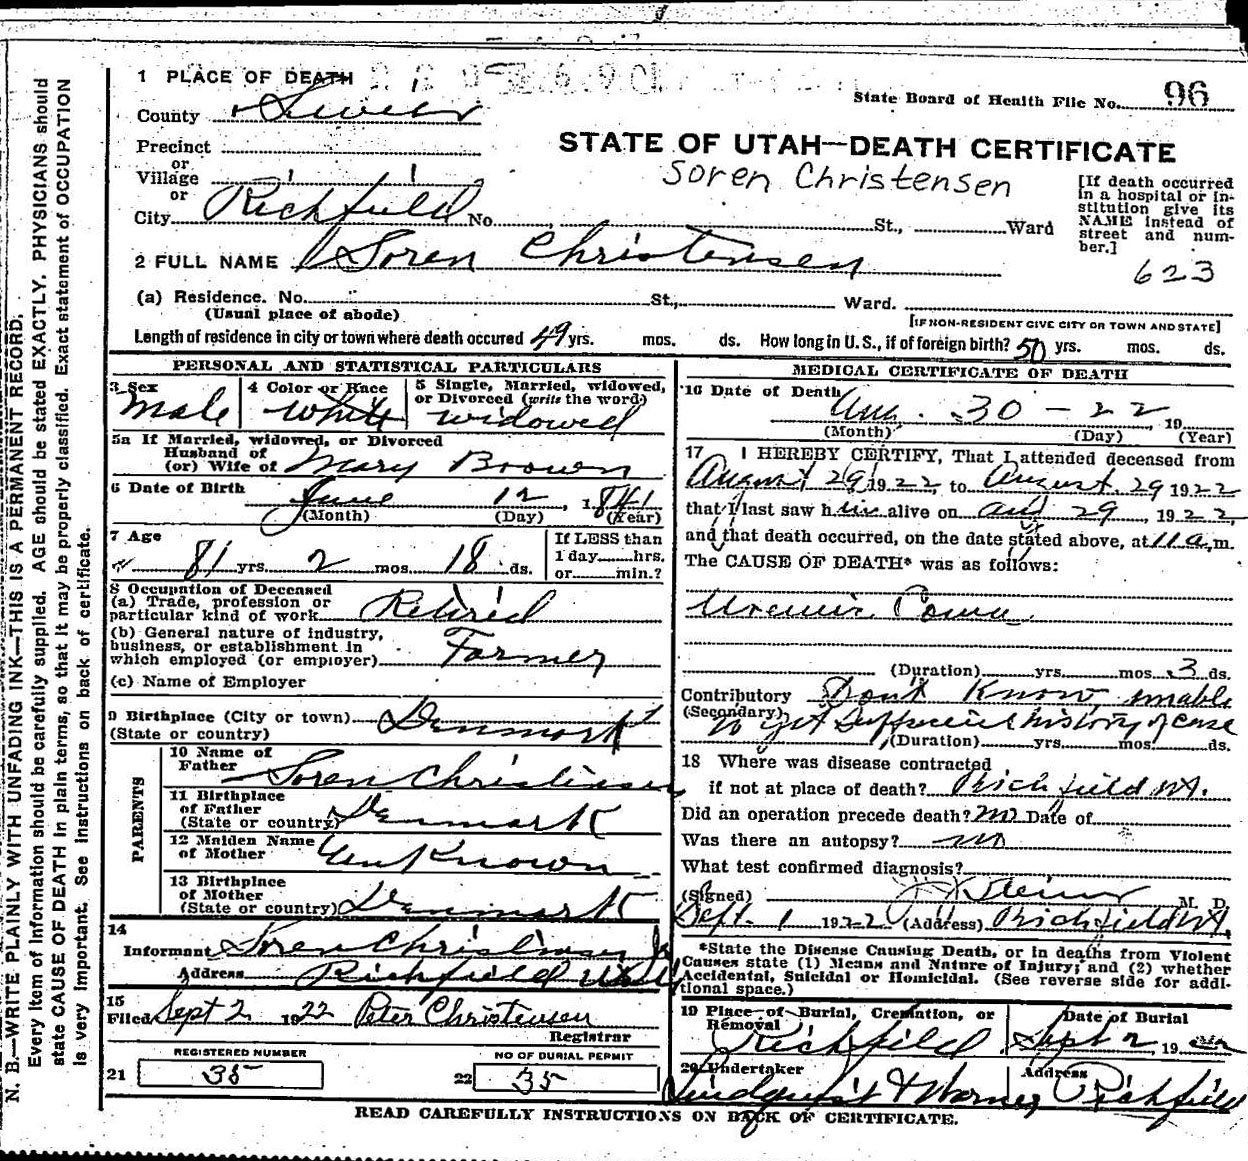 1 PLACE OF DEATH
State Board of Health File No. 96
County Sevier
STATE OF UTAH—DEATH CERTIFICATE
Precinct
or
Village
or
City Richfield No. St., Ward
Soren Christensen
[If death occurred in a hospital or in-
stitution give its
NAME instead of
street and num-
ber.]
623
2 FULL NAME Soren Christensen
(a) Residence. No. St., Ward.
(Usual place of abode)
[IF NON-RESIDENT GIVE CITY OR TOWN AND STATE]
Length of residence in city or town where death occured 49 yrs. mos. ds. How long in U. S., if of foreign birth? 50 yrs. mos. ds.
PERSONAL AND STATISTICAL PARTICULARS
3 Sex
Male
4 Color or Race
White
5 Single, Married, widowed,
or Divorced (write the word)
widowed
5a If Married, widowed, or Divorced
Husband of
(or) Wife of Mary Brown
6 Date of Birth June 12, 1841
(Month) (Day) (Year)
7 Age
81 yrs. 2 mos. 18 ds.
If LESS than
1 day hrs.
or min.?
8 Occupation of Deceased
(a) Trade, profession or
particular kind of work Retired
(b) General nature of industry,
business, or establishment in
which employed (or employer) Farmer
(c) Name of Employer
9 Birthplace (City or town) Denmark
(State or country)
PARENTS
10 Name of
Father Soren Christensen
11 Birthplace
of Father
(State or country) Denmark
12 Maiden Name
of Mother Unknown
13 Birthplace
of Mother
(State or country) Denmark
14
Informant Soren Christensen Jr
Address Richfield Utah
15
Filed Sept 2 1922 Peter Christensen
Registrar
REGISTERED NUMBER
21 35
NO OF BURIAL PERMIT
22 35
MEDICAL CERTIFICATE OF DEATH
16 Date of Death Aug. 30 - 22, 19
(Month) (Day) (Year)
17 I HEREBY CERTIFY, That I attended deceased from
August 29 1922, to August 29 1922
that I last saw him alive on aug 29, 1922,
and that death occurred, on the date stated above, at 11 a.m.
The CAUSE OF DEATH* was as follows:
Uremic Coma
(Duration) yrs. mos. 3 ds.
Contributory Dont Know, unable
(Secondary) to get Sufficient history of case
(Duration) yrs. mos. ds.
18 Where was disease contracted
if not at place of death? Richfield Ut.
Did an operation precede death? no Date of
Was there an autopsy? no
What test confirmed diagnosis?
(Signed) M. D.
Sept. 1 1922 (Address) Richfield Ut.
*State the Disease Causing Death, or in deaths from Violent
Causes state (1) Means and Nature of Injury; and (2) whether
Accidental, Suicidal or Homicidal. (See reverse side for addi-
tional space.)
19 Place of Burial, Cremation, or
Removal Richfield
Date of Burial
Sept 2, 19 22
20 Undertaker
Lindquist & Warner
Address
Richfield
READ CAREFULLY INSTRUCTIONS ON BACK OF CERTIFICATE.
N. B.—WRITE PLAINLY WITH UNFADING INK—THIS IS A PERMANENT RECORD.
Every item of information should be carefully supplied. AGE should be stated EXACTLY. PHYSICIANS should
state CAUSE OF DEATH in plain terms, so that it may be properly classified. Exact statement of OCCUPATION
is very important. See instructions on back of certificate.